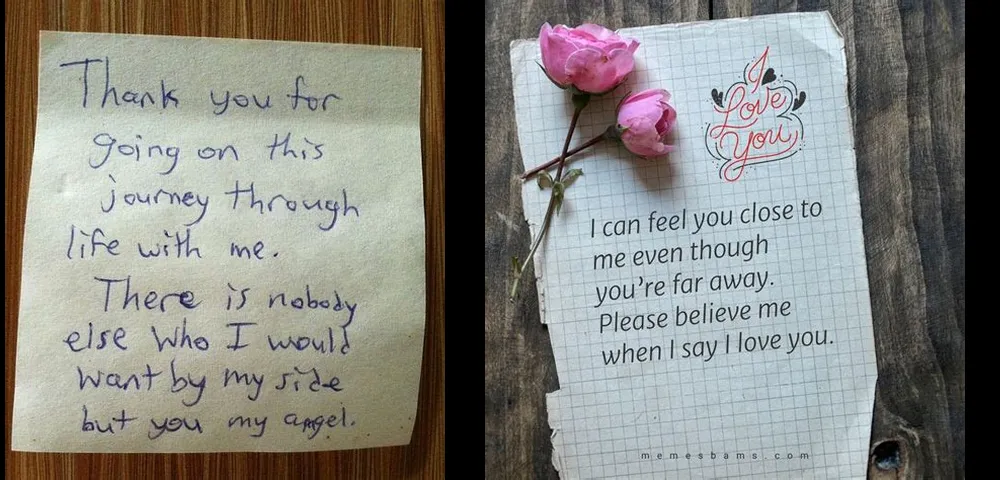 Thank you for
going on this
journey through
life with me.
There is nobody
else who I would
want by my side
but you my angel.
I
Love
You
I can feel you close to
me even though
you're far away.
Please believe me
when I say I love you.
memesbams.com